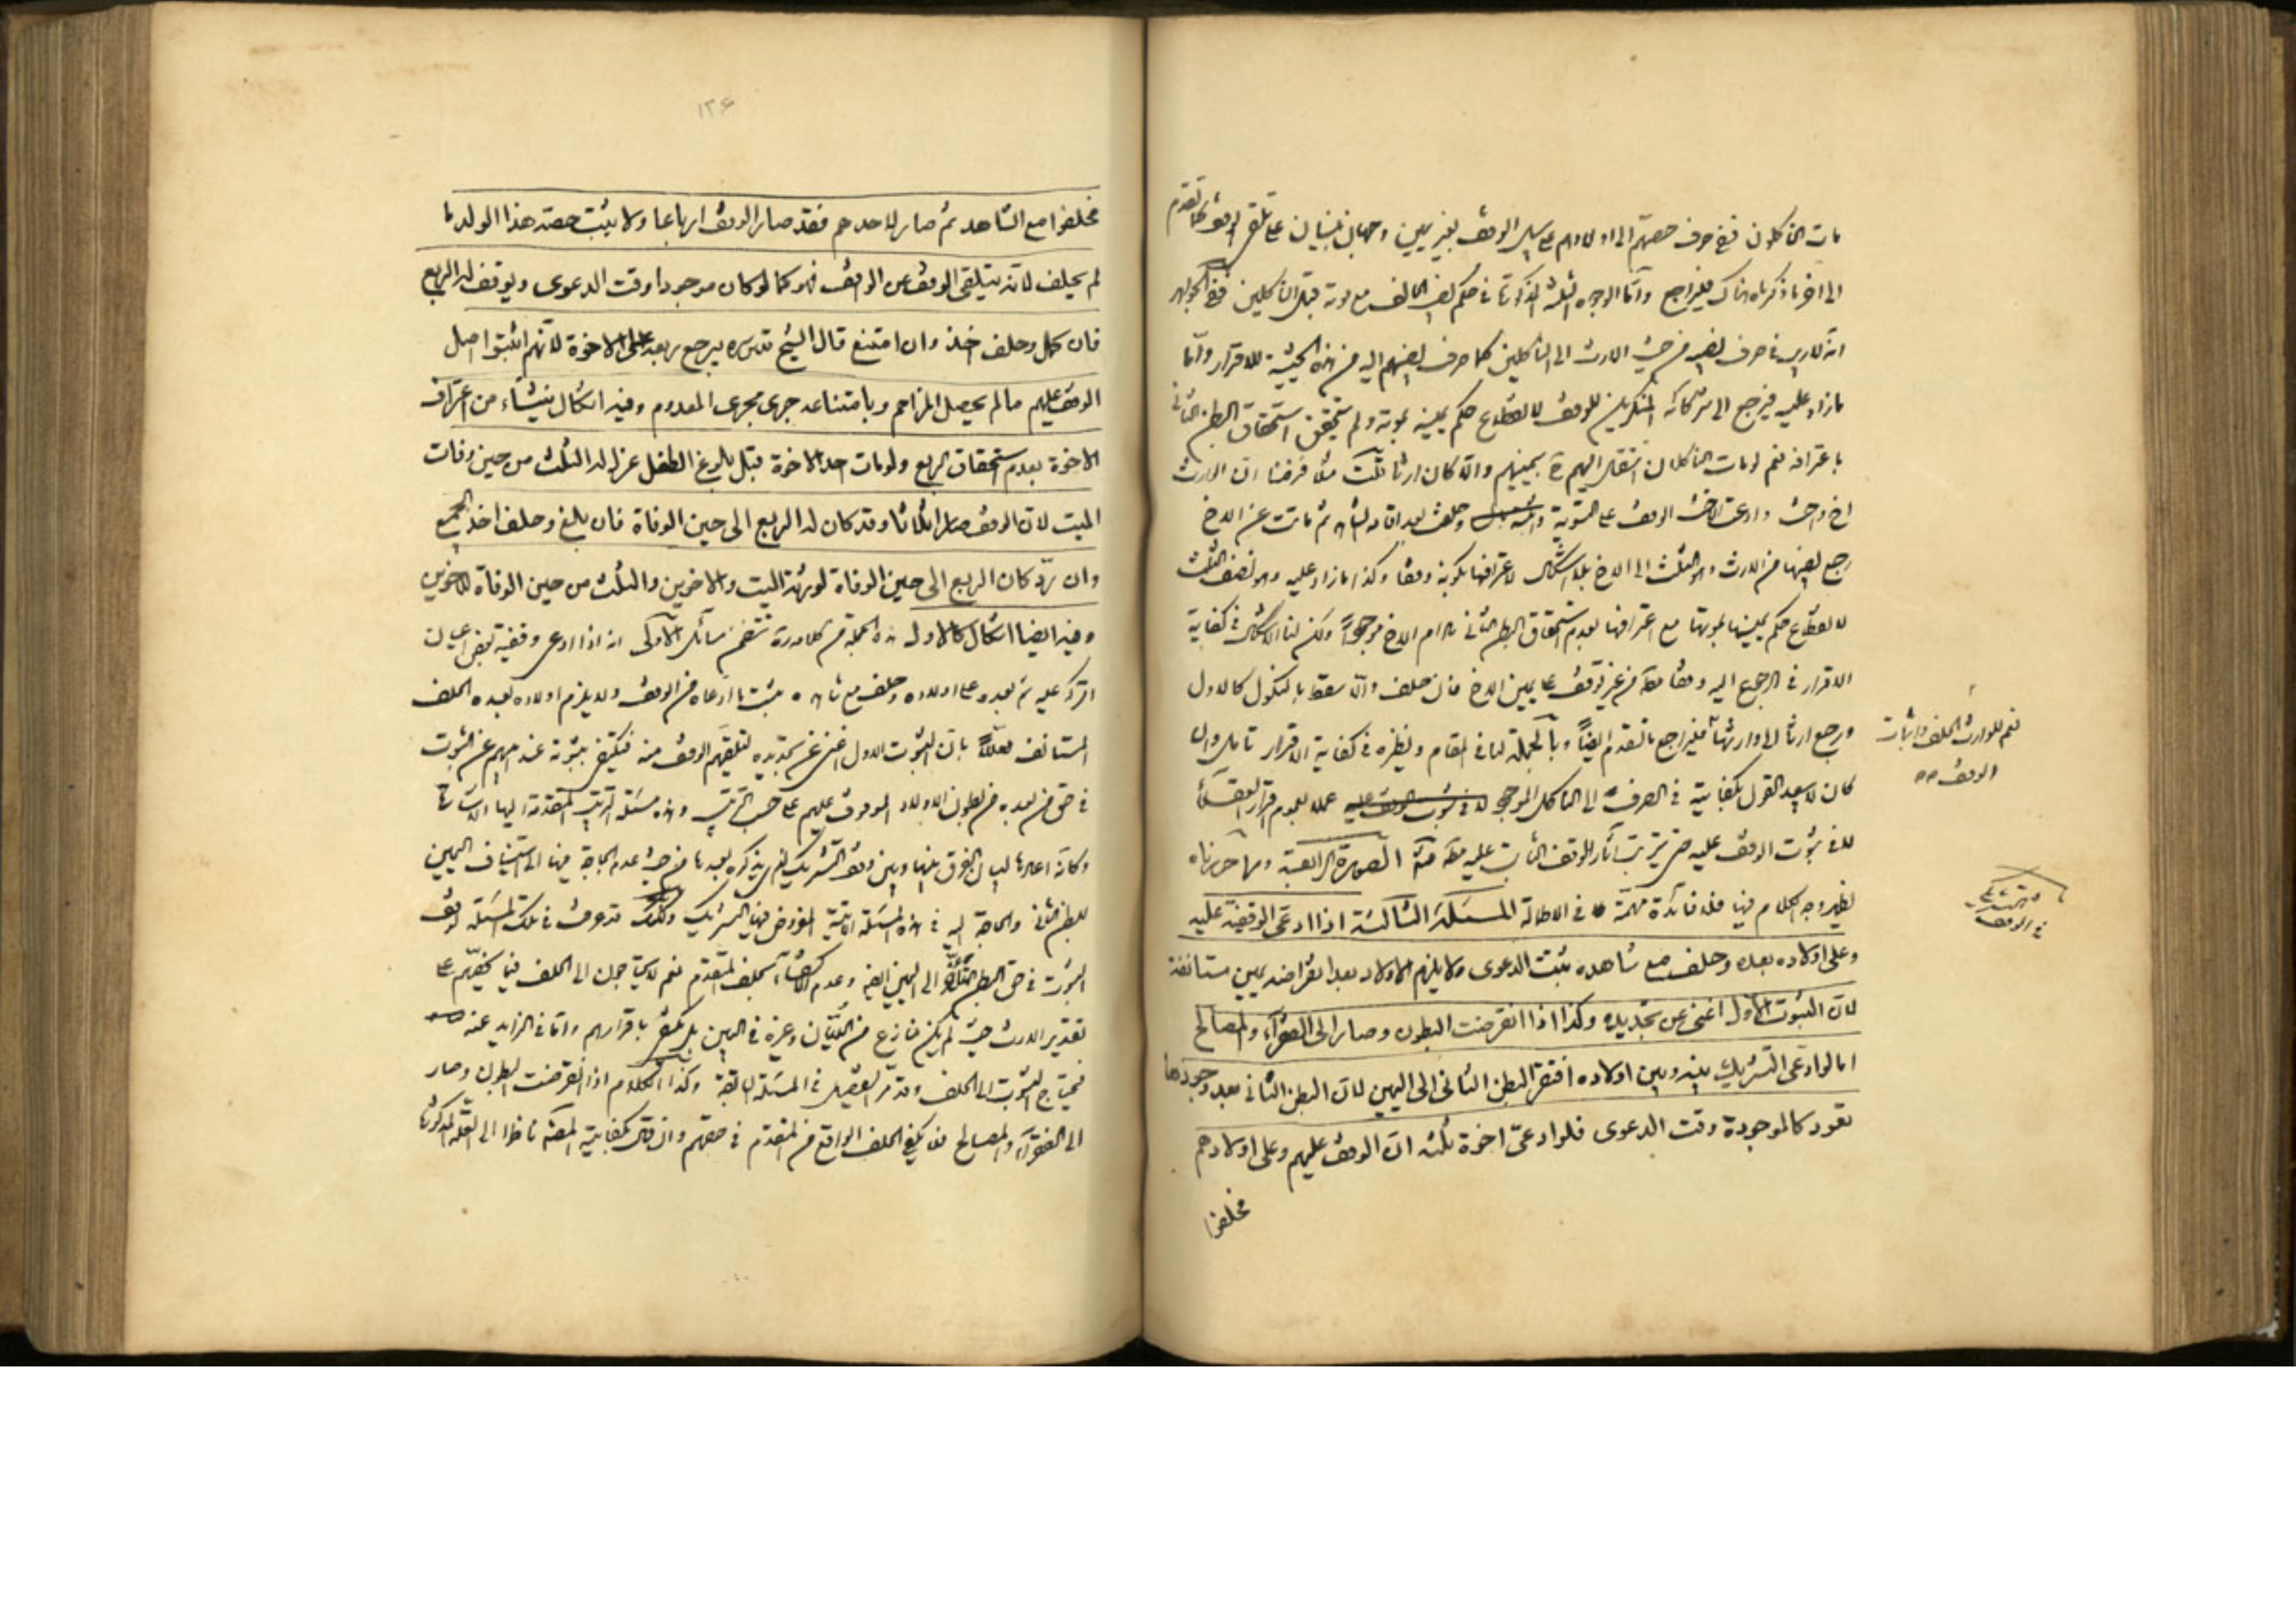 مات الناكلون ففي صرف حصتهم الى اولادهم على سبيل الوقف بغير يمين وجهان مبنيان على تلقي الوقف كما تقدم
الى اخر ما ذكرناه هناك فليراجع واما الوجوه الثلثة المذكورة في حكم نصيب الحالف مع موته قبل الناكلين
انه لا ريب في صرف نصيبه من حيث الارث الى الناكلين كما صرف نصيبهم اليه من هذه الحيثية للاقرار وامّا
ما زاد عليه فيرجع الى شركائه المنكرين للوقف لانقطاع حكم يمينه بموته ولم يتحقق استحقاق البطن الثاني
باعترافه نعم لو مات الناكلان انتقل اليهم بيمينهم والّا كان ارثا ثلث مثلا فرضنا ان الوارث
اخ واخت وادعت الاخت الوقف على التسوية وحلفت بعد اقامة الشاهد ثم ماتت عن الاخ
رجع نصيبها من الارث وهو الثلث الى الاخ بلا اشكال لاعترافها بكونه وقفا وكذا ما زاد عليه وهو نصف الثلث
لانقطاع حكم يمينها بموتها مع اعترافها بعدم استحقاق البطن الثاني ما دام الاخ موجوداً ولكن لنا الاشكال في كفاية
الاقرار في الرجوع اليه وقفا من غير توقف على يمين الاخ فان حلف والّا سقط بالنكول كالاول
ورجع ارثا الى وارثها فليراجع ما تقدم ايضاً وبالجملة لنا في المقام ونظيره في كفاية الاقرار تامل وان
كان لا يبعد القول بكفايته في الصرف الى الناكل الموجود لا في ثبوت الوقف عليه عملا بعموم اقرار العقلاء
لا في ثبوت الوقف عليه حتى يترتب آثار الوقف الثابت عليه الصورة الرابعة ومما حررناه
يظهر وجه الكلام فيها فلا فائدة مهمة في الاطالة المسئلة الثالثة اذا ادعى الوقفية عليه
وعلى اولاده بعده وحلف مع شاهده يثبت الدعوى ولا يلزم الاولاد بعد انقراضه يمين مستانفة
لان الثبوت الاول اغنى عن تجديده وكذا اذا انقرضت البطون وصار الى الفقراء والمصالح
اما لو ادعى التشريك بينه وبين اولاده افتقر البطن الثاني الى اليمين لان البطن الثاني بعد وجودها
تعود كالموجودة وقت الدعوى فلو ادعى اخوة ثلثه ان الوقف عليهم وعلى اولادهم
فحلفوا
نعم للوارث الحلف واثبات
الوقف
في الوقف
١٣۶
فحلفوا مع الشاهد ثم صار لاحدهم فقد صار الوقف ارباعا ولا يثبت حصة هذا الولد ما
لم يحلف لانه يتلقى الوقف من الواقف فهو كما لو كان موجودا وقت الدعوى ويوقف له الربع
فان كمل وحلف اخذ وان امتنع قال الشيخ قدس سره يرجع ربعه على الاخوة لانهم اثبتوا اصل
الوقف عليهم ما لم يحصل المزاحم وبامتناعه جرى مجرى المعدوم وفيه اشكال ينشاء من اعتراف
الاخوة بعدم استحقاق الربع ولو مات احد الاخوة قبل بلوغ الطفل عزل له الثلث من حين وفات
الميت لان الوقف صار اثلاثا وقد كان له الربع الى حين الوفاة فان بلغ وحلف اخذ الجميع
وان ردّ كان الربع الى حين الوفاة لورثة الميت والاخوين والثلث من حين الوفاة للاخوين
وفيه ايضا اشكال كالاول هذه الجملة من كلامه تتضمن مسائل الاولى انه اذا ادعى وقفية بعض اعيان
التركة عليه ثم بعده على اولاده وحلف مع شاهده يثبت ما ادعاه من الوقف ولا يلزم اولاده بعده الحلف
المستانف معللاً بان الثبوت الاول اغنى عن تجديده لتلقيهم الوقف منه فيكتفى بثبوته عند ابيهم عن الثبوت
في حق من بعده من بطون الاولاد الموقوف عليهم على حسب الترتيب وهذه مسئلة الترتيب المتقدمة اليها الاشارة
وكانه اعادها لبيان الفرق بينها وبين وقف التشريك الذي يذكره بعدها من حيث عدم الحاجة فيها الى استيناف اليمين
للبطن الثاني والحاجة اليه في هذه المسئلة الاتية المفروض فيها التشريك قد عرفت في تلك المسئلة توقف
الثبوت في حق البطن الثاني الى اليمين ايضا وعدم الاكتفاء بحلف المتقدم نعم لا يحتاجون الى الحلف فيما يخصهم على
تقدير الارث حيث لم يكن منازع من الديان وغيره في البين بل يكتفى باقرارهم وامّا في الزايد عنه
فيحتاج الثبوت الى الحلف وقد مرّ التفصيل في المسئلة السابقة وكذا الكلام اذا انقرضت البطون وصار
الى الفقراء والمصالح فلا يكفي الحلف الواقع من المتقدم في حقهم وان قال بكفايته المصنف ناظرا الى العلة المذكورة